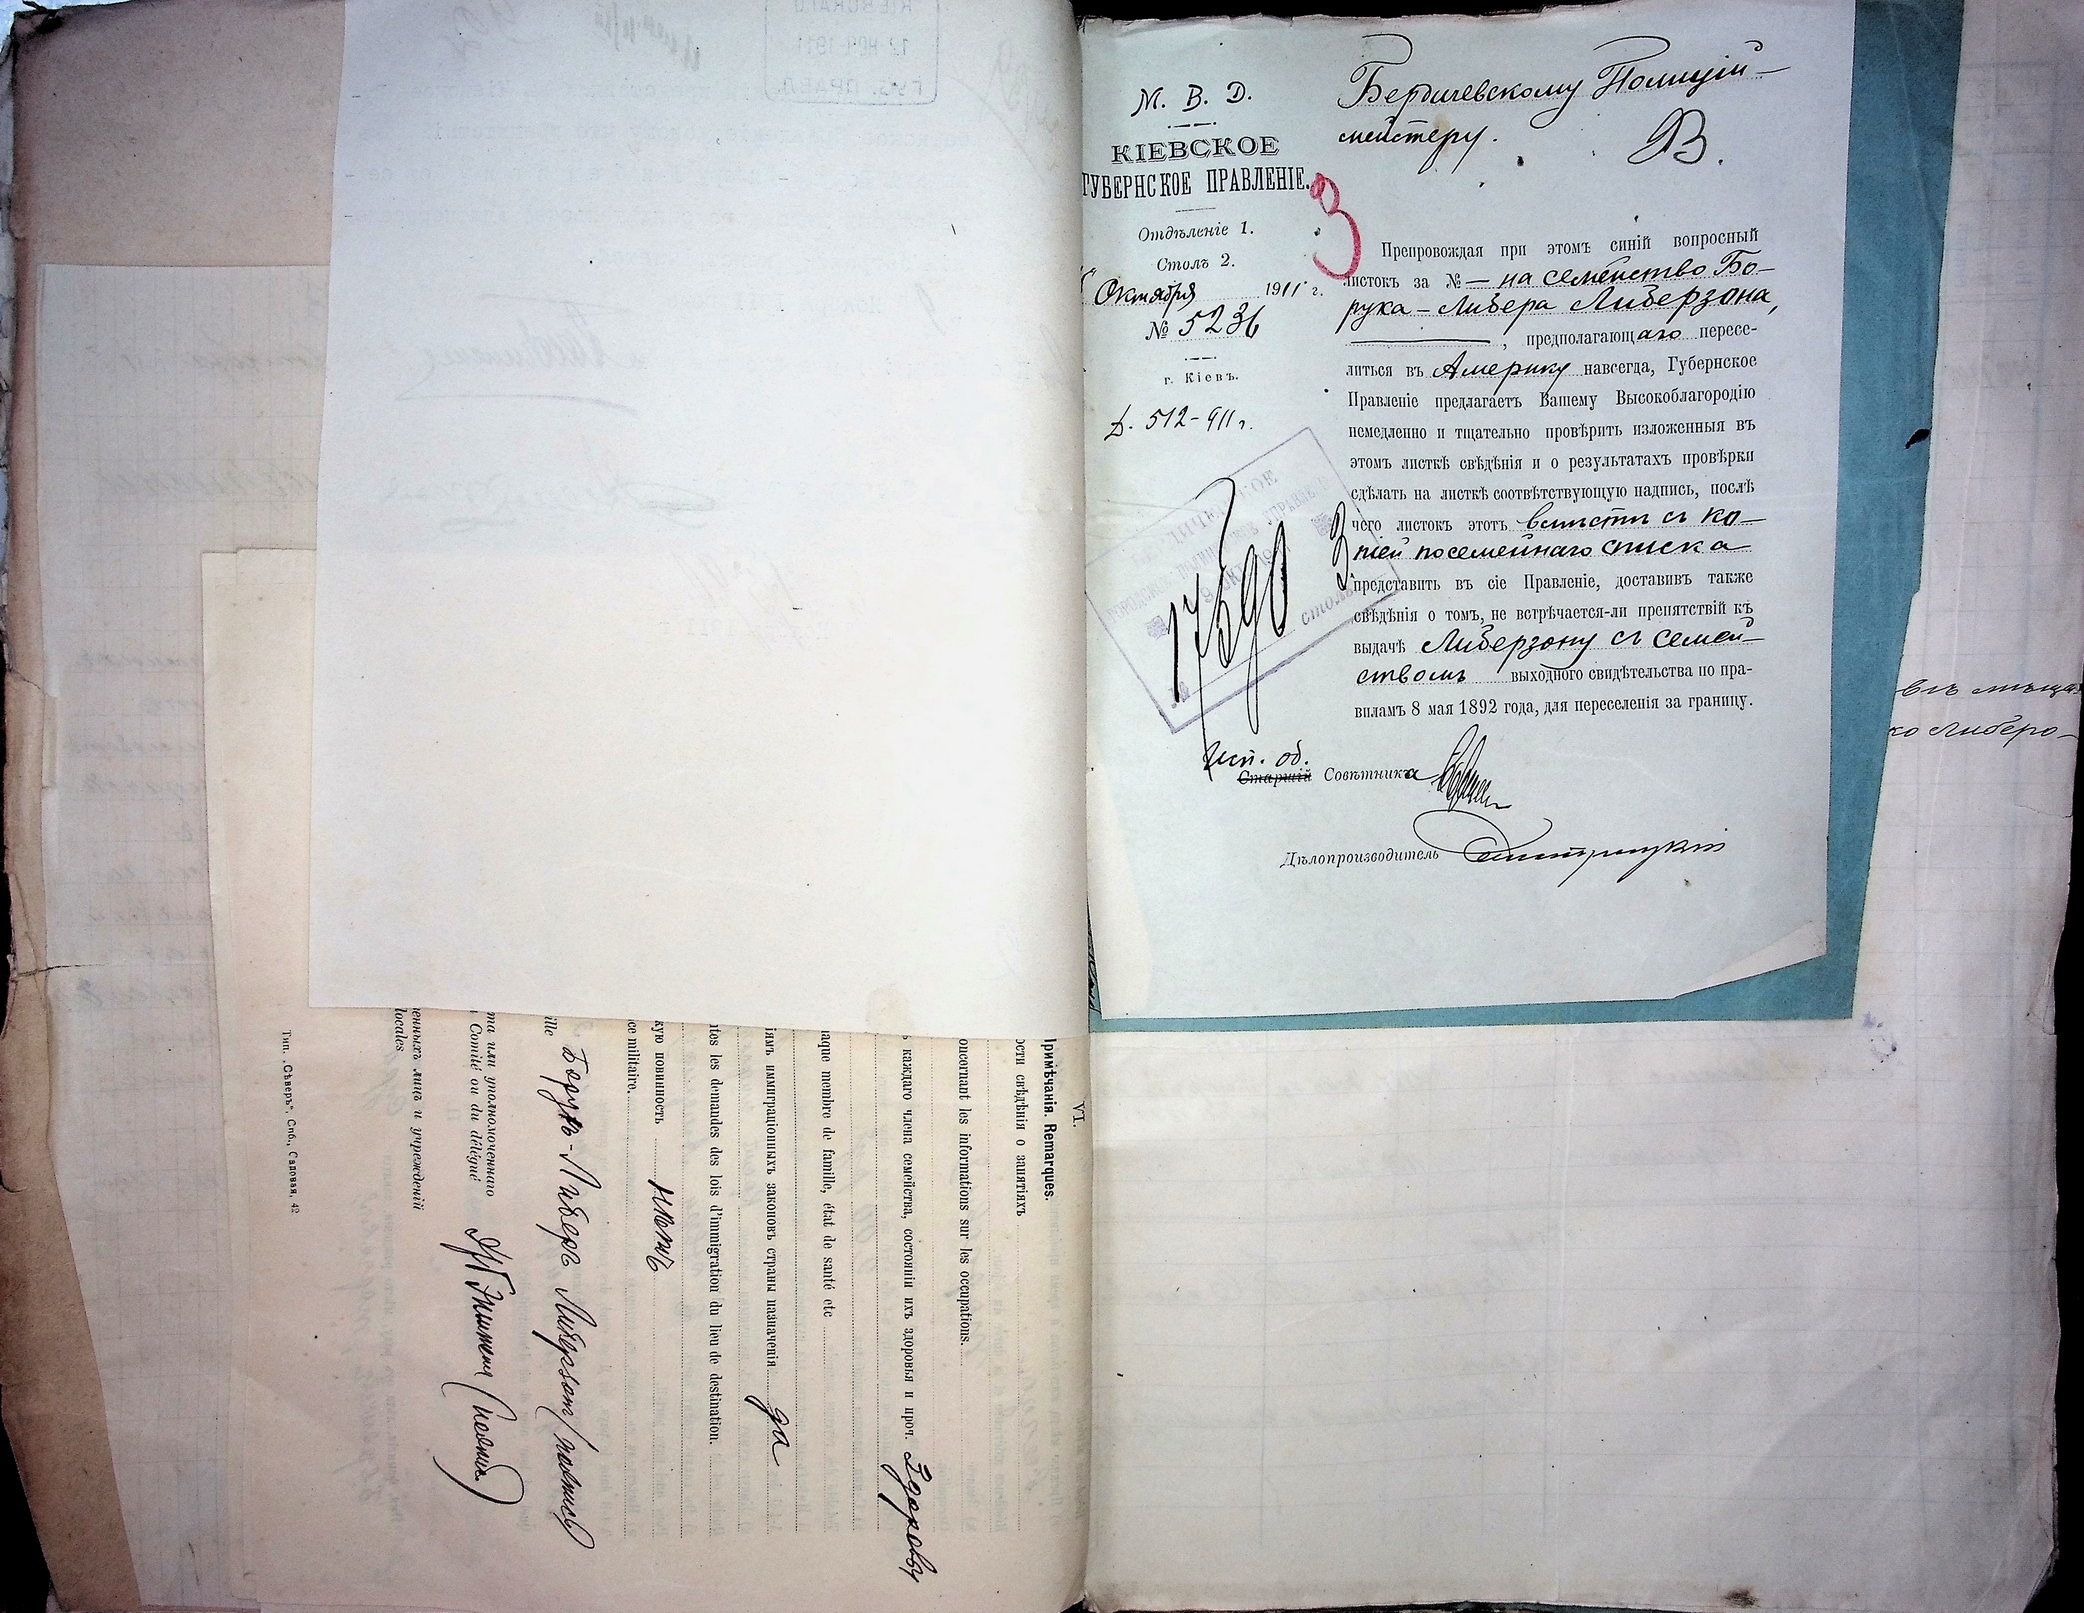 М. В. Д.
КІЕВСКОЕ
ГУБЕРНСКОЕ ПРАВЛЕНІЕ.
Отдѣленіе 1.
Столъ 2.
Октября 1911 г.
№ 5236
г. Кіевъ.
Д. 512-911 г.
17590
столъ
3
Бердичевскому Полицій-
мейстеру.
В.
Препровождая при этомъ синій вопросный
листокъ за № — на семейство Бо-
руха-Либера Либерзона,
, предполагающаго пересе-
литься въ Америку навсегда, Губернское
Правленіе предлагаетъ Вашему Высокоблагородію
немедленно и тщательно провѣрить изложенныя въ
этомъ листкѣ свѣдѣнія и о результатахъ провѣрки
сдѣлать на листкѣ соотвѣтствующую надпись, послѣ
чего листокъ этотъ вмѣстѣ съ ко-
піей посемейнаго списка
представить въ сіе Правленіе, доставивъ также
свѣдѣнія о томъ, не встрѣчается-ли препятствій къ
выдачѣ Либерзону съ семей-
ствомъ выходного свидѣтельства по пра-
виламъ 8 мая 1892 года, для переселенія за границу.
Исп. об.
Старшій Совѣтника
Дѣлопроизводитель
ко Либерзо-
VI.
Примѣчанія. Remarques.
ости свѣдѣнія о занятіяхъ
oncernant les informations sur les occupations.
каждаго члена семейства, состояніи ихъ здоровья и проч. Здоровы
aque membre de famille, état de santé etc
іямъ иммиграціонныхъ законовъ страны назначенія да
ntes les demandes des lois d'immigration du lieu de destination.
кую повинность нѣтъ
ce militaire.
ille Борухъ-Либеръ Либерзонъ (подпись)
та или уполномоченнаго
Comité ou du délégué
(подпись)
енныхъ лицъ и учрежденій
locales
Тип. „Сѣверъ", Спб., Садовая, 42